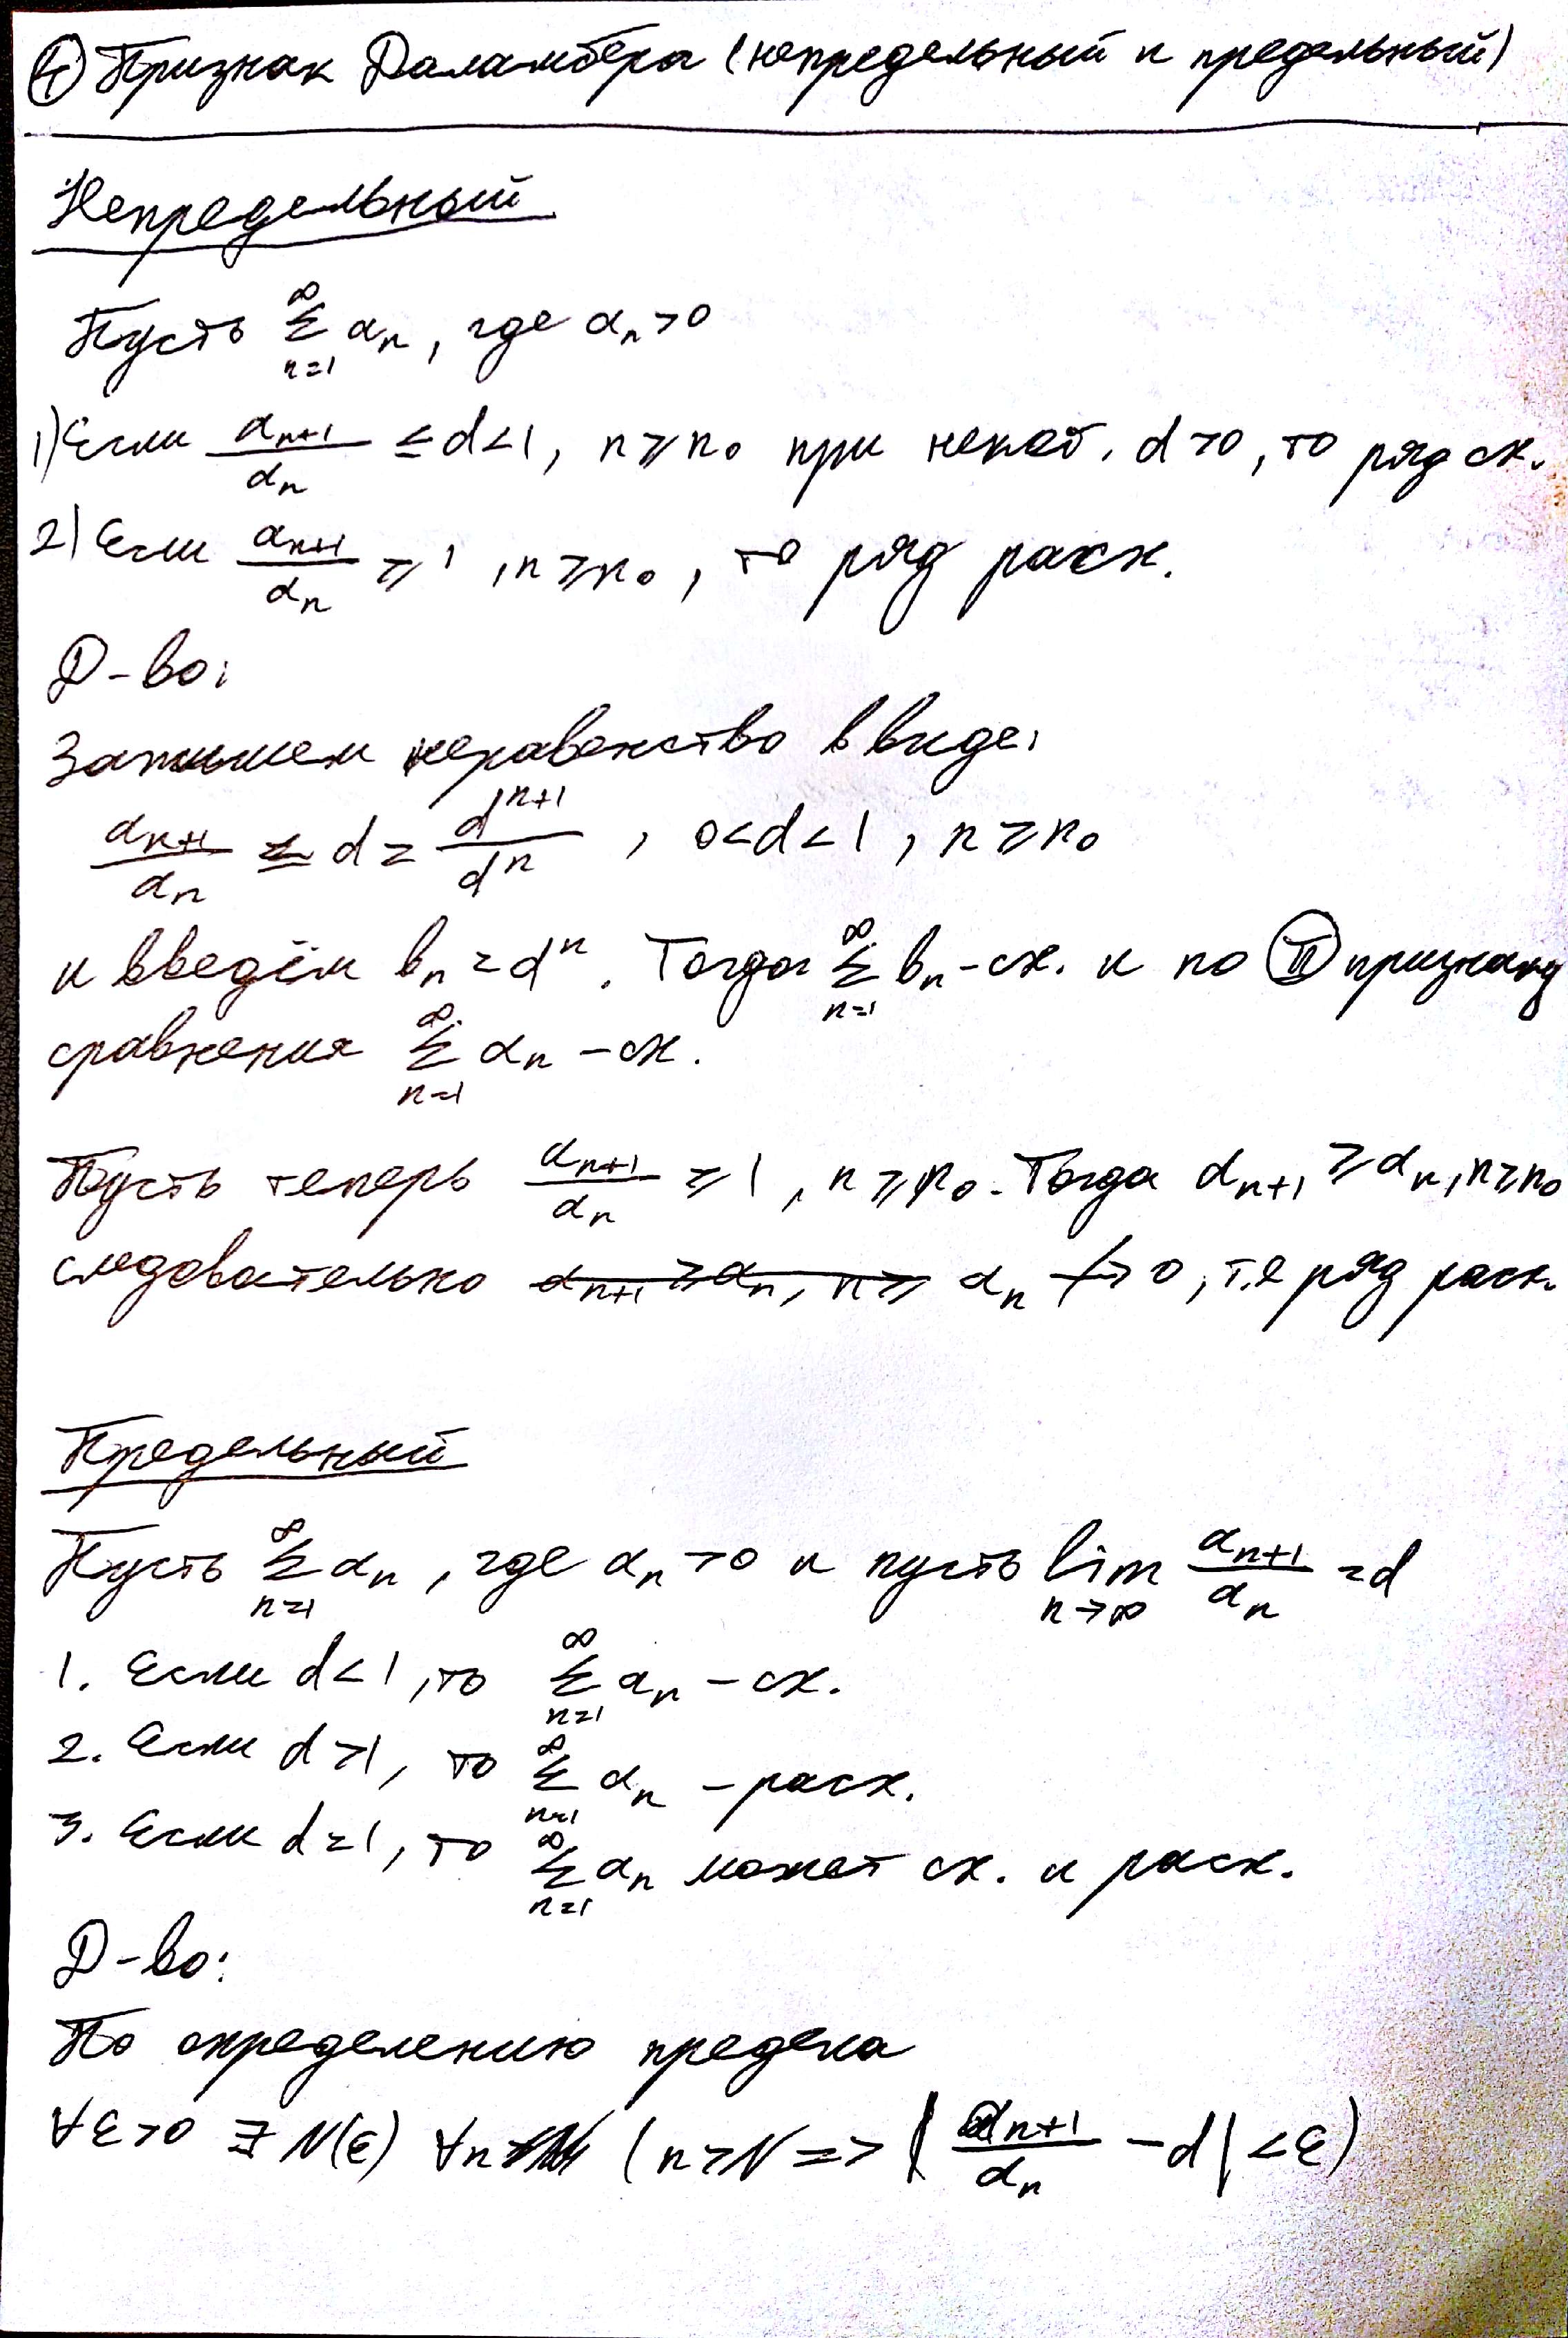 ④ Признак Даламбера (непредельный и предельный)
Непредельный
Пусть ∑_{n=1}^{∞} a_n, где a_n > 0
1) Если a_{n+1}/a_n ≤ d < 1, n ⩾ n_0 при некот. d > 0, то ряд сх.
2) Если a_{n+1}/a_n ⩾ 1, n ⩾ n_0, то ряд расх.
Д-во:
Запишем неравенство в виде:
a_{n+1}/a_n ≤ d = d^{n+1}/d^n, 0 < d < 1, n ⩾ n_0
и введём b_n = d^n. Тогда ∑_{n=1}^{∞} b_n - сх. и по Ⅱ признаку
сравнения ∑_{n=1}^{∞} a_n - сх.
Пусть теперь a_{n+1}/a_n ⩾ 1, n ⩾ n_0. Тогда a_{n+1} ⩾ a_n, n ⩾ n_0
следовательно a_{n+1} ⩾ a_n, n ⩾ a_n ↛ 0, т.е ряд расх.
Предельный
Пусть ∑_{n=1}^{∞} a_n, где a_n > 0 и пусть lim_{n→∞} a_{n+1}/a_n = d
1. Если d < 1, то ∑_{n=1}^{∞} a_n - сх.
2. Если d > 1, то ∑_{n=1}^{∞} a_n - расх.
3. Если d = 1, то ∑_{n=1}^{∞} a_n может сх. и расх.
Д-во:
По определению предела
∀ε > 0 ∃ N(ε) ∀n (n > N => | a_{n+1}/a_n - d | < ε)